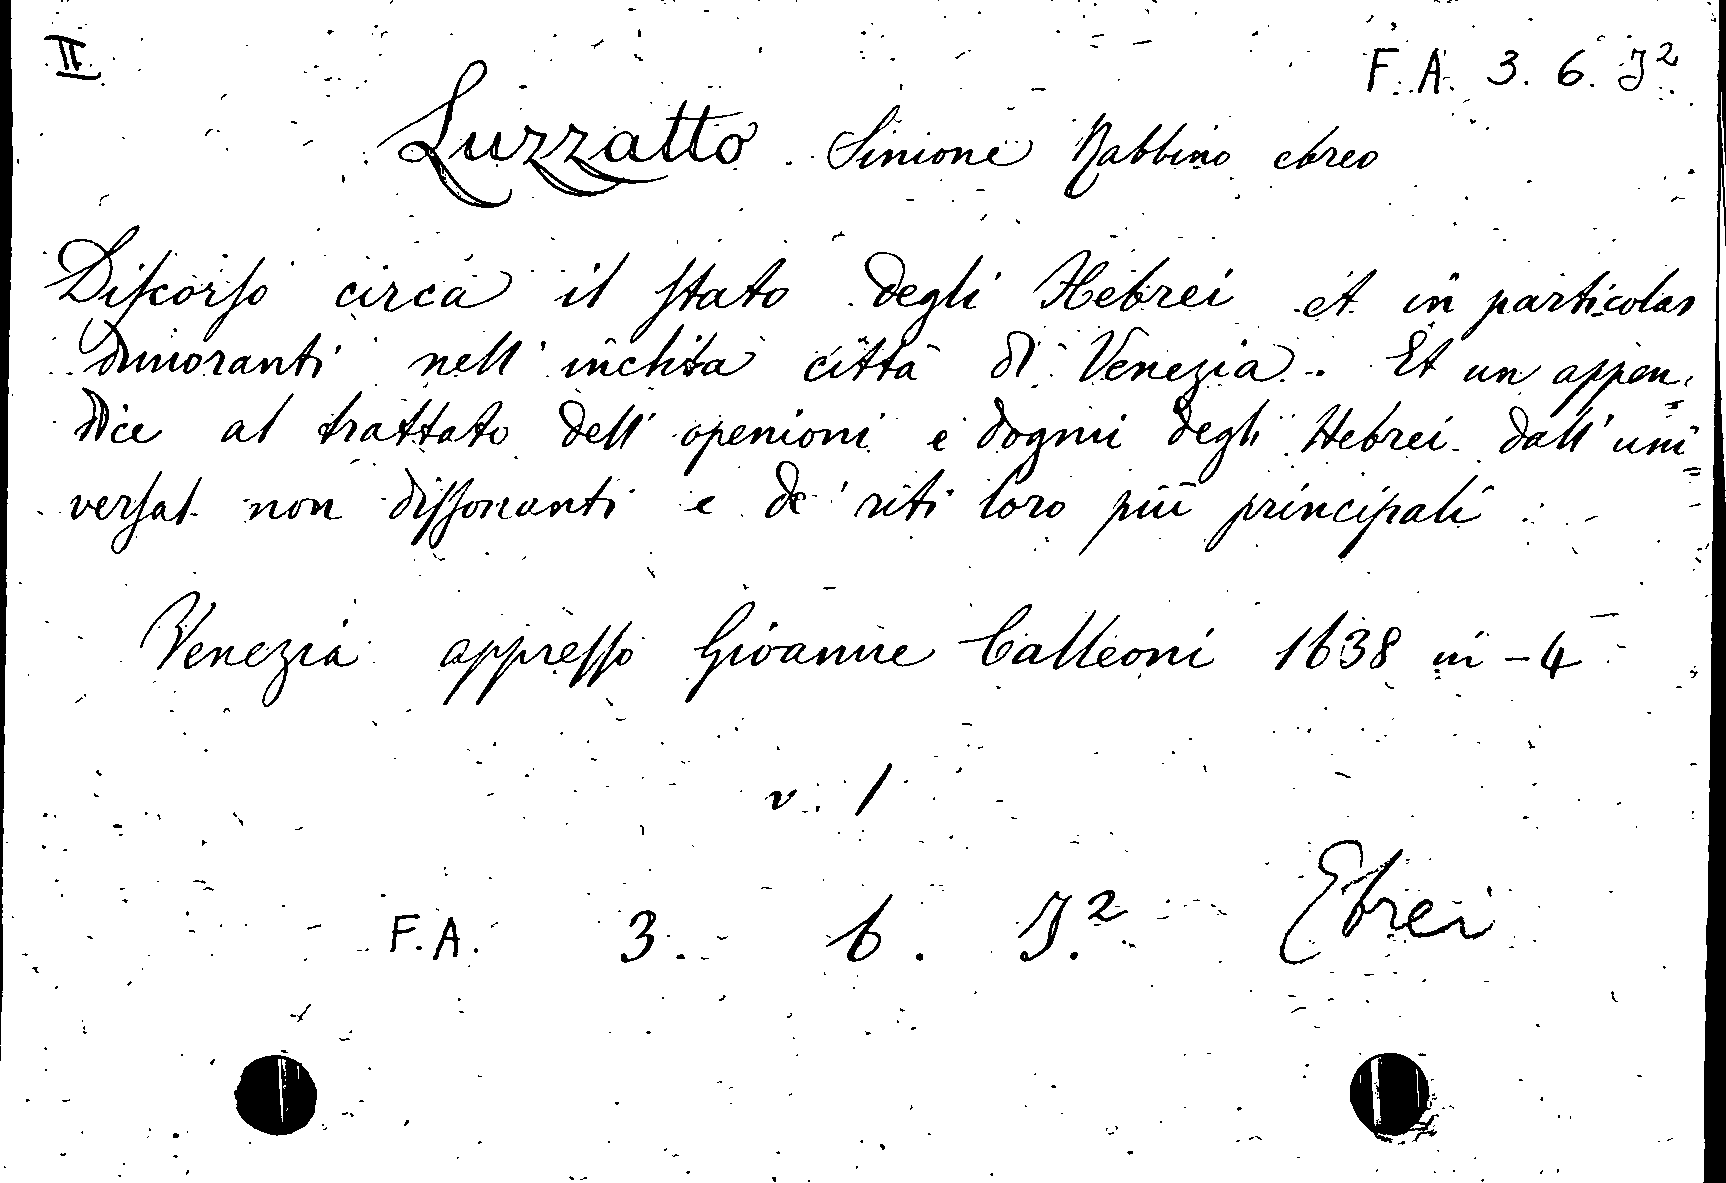 II
F. A. 3. 6. J²
Luzzatto Simone Rabbino ebreo
Discorso circa il stato degli Hebrei et in particolar
dimoranti nell' inclita città di Venezia. Et un appen=
dice al trattato dell' openioni e dogmi degli Hebrei dall' uni=
versal non dissonanti e de' riti loro più principali
Venezia appresso Gioanne Calleoni 1638 in-4
v. 1
F.A. 3. 6. J.² Ebrei